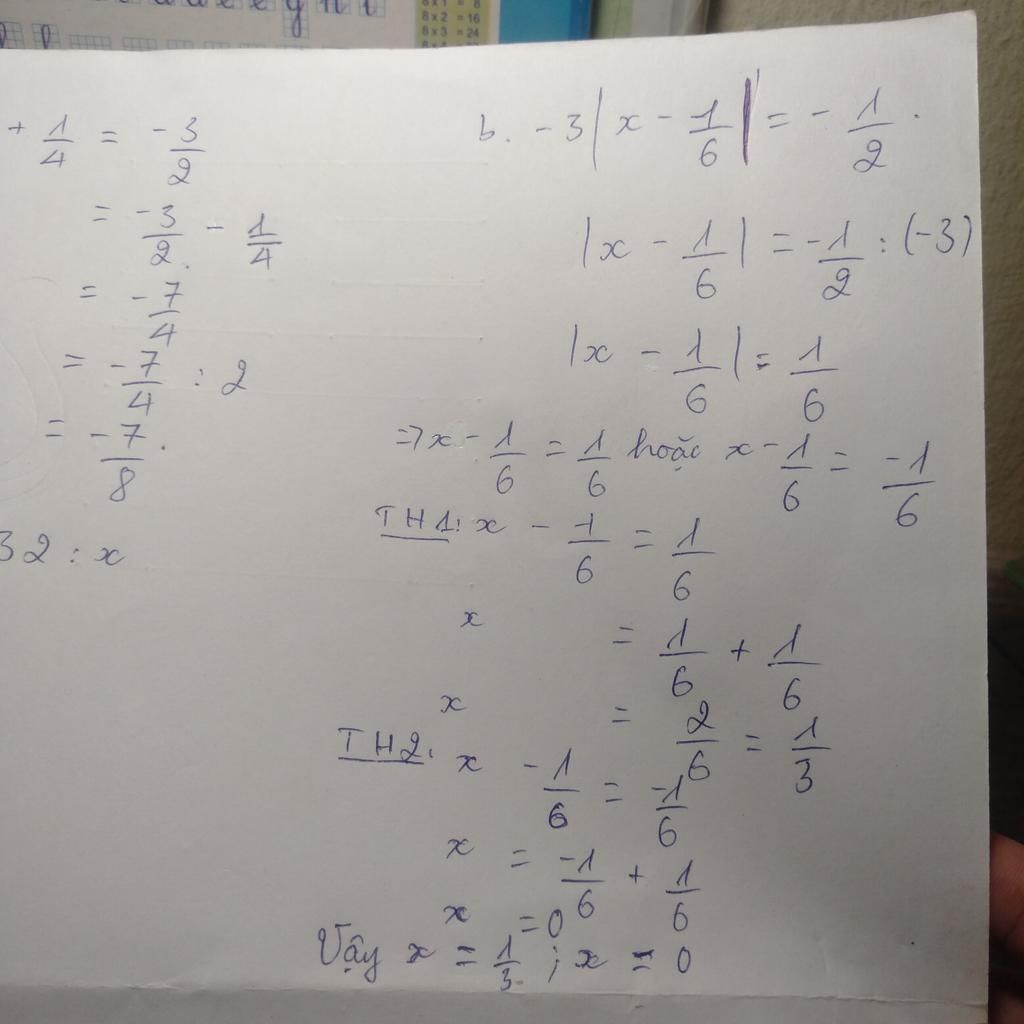 8 x 1 = 8
8 x 2 = 16
8 x 3 = 24
+ 1/4 = -3/2
= -3/2 - 1/4
= -7/4
= -7/4 : 2
= -7/8.
32 : x
b. -3|x - 1/6| = -1/2.
|x - 1/6| = -1/2 : (-3)
|x - 1/6| = 1/6
=> x - 1/6 = 1/6 hoặc x - 1/6 = -1/6
TH1: x - 1/6 = 1/6
x = 1/6 + 1/6
x = 2/6 = 1/3
TH2: x - 1/6 = -1/6
x = -1/6 + 1/6
x = 0
Vậy x = 1/3 ; x = 0